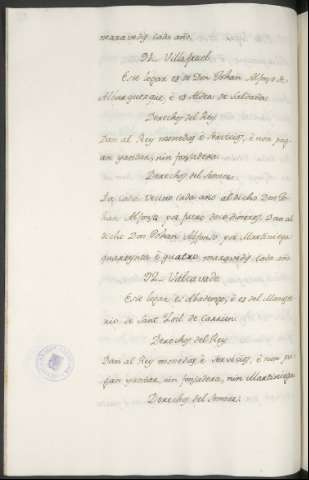 maravedis cada año.
91.. Villasruel
Este logar es de Don Johan Alfonso de
Alburquerque, è es Aldea de Saldaña
Derechos del Rey
Dan al Rey monedas è servicios, è non pa-
gan yantar, nin fonsadera.
Derechos del Sennor.
Da cada vecino cada año al dicho Don Jo-
han Alfonso por fuero doce dineros. Dan al
dicho Don Johan Alfonso por Martiniega
quarenta è quatro maravedis cada año
92.. Villanuade
Este logar es Abadengo, è es del Monaste-
rio de Sant Zoil de Carrion
Derechos del Rey
Dan al Rey monedas è servicios, è non pa-
gan yantar, nin fonsadera, nin Martiniega
Derechos del Sennor.